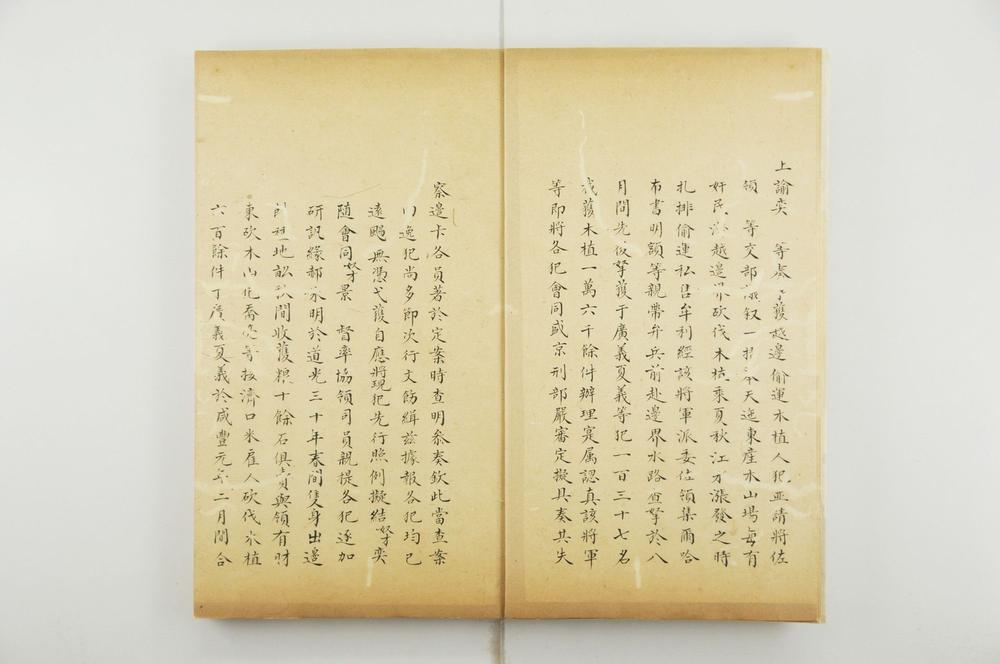 上諭奕 等奏 獲越邊偷運木植人犯並請將佐
領 等交部議叙一摺奉天迤東產木山場每有
奸民 越邊界砍伐木植乘夏秋江水漲發之時
扎排偷運私售牟利經該將軍派委佐領集爾哈
布書明額等親帶弁兵前赴邊界水路查拏於八
月間先後拏獲于廣義夏義等犯一百三十七名
截獲木植一萬六千餘件辦理寔属認真該將軍
等即將各犯會同盛京刑部嚴審定擬具奏其失
察邊卡各員著於定案時查明叅奏欽此當查案
內逸犯尚多節次行文飭緝兹據報各犯均已
遠颺無憑弋獲自應將現犯先行照例擬結奴才奕
隨會同奴才景 督率協領司員親提各犯逐加
研訊緣郝永明於道光三十年春間隻身出邊
租地 秋間收獲糧十餘石俱賣與領有財
東砍木山 喬 接濟口米雇人砍伐木植
六百餘件于廣義夏義於咸豐元年二月間合